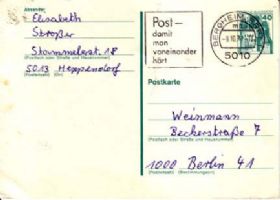 Absender:
Elisabeth
Stroßer
Stommelerstr. 18
(Postfach oder Straße und Hausnummer)
5013 Heppendorf
(Postleitzahl) (Ort)
Post-
damit
man
voneinander
hört
BERGHEIM
5010
Postkarte
Weinmann
Beckerstraße 7
(Postfach oder Straße und Hausnummer)
1000 Berlin 41
(Postleitzahl) (Bestimmungsort)